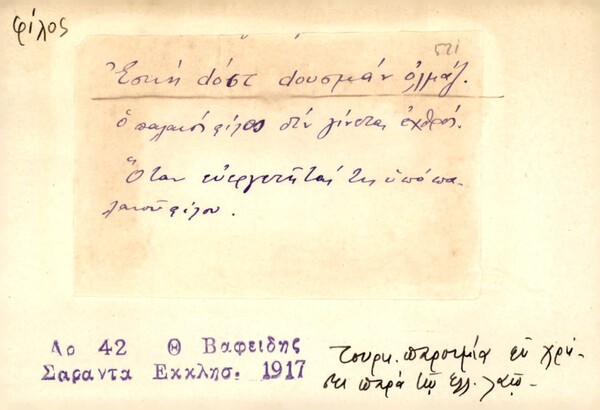 φίλος
521
Ἐσκὴ dόστ dουσμὰν ὀλμάζ.
ὁ παλαιὸς φίλος δὲν γίνεται ἐχθρός.
Ὅταν εὐεργετῆταί τις ὑπὸ πα-
λαιοῦ φίλου.
Λο 42 Θ Βαφειδης
Σαραντα Εκκλησ. 1917
Τουρκ. παροιμία ἐν χρή-
σει παρὰ τῷ ἑλλ. λαῷ.-